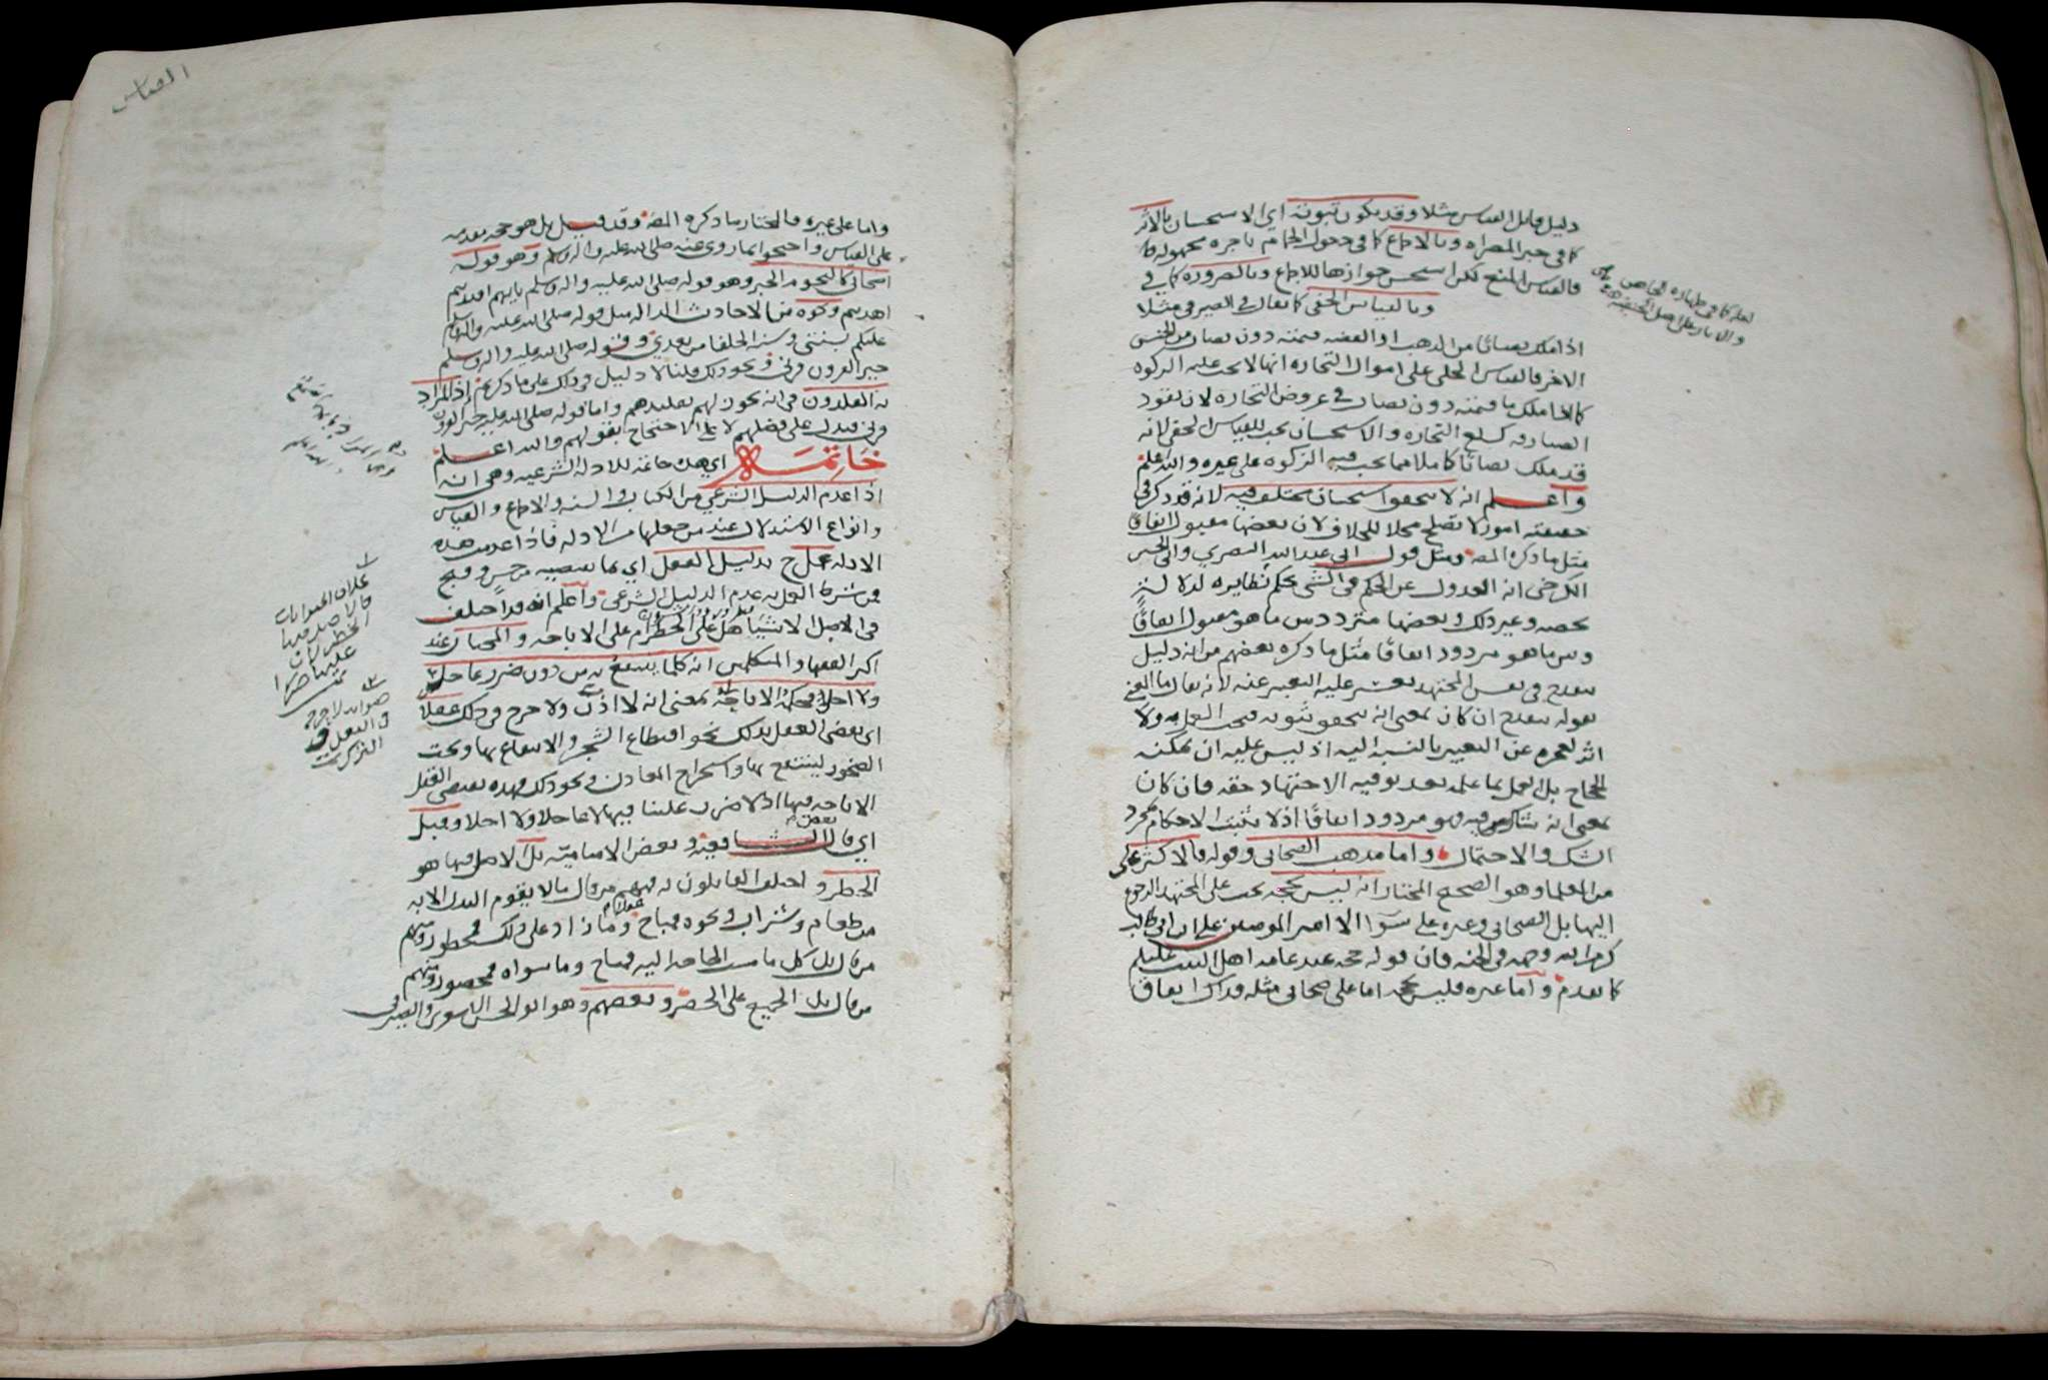 دليل مقابل القياس مثلا وقد يكون ثبوته اي الاستحسان بالاثر
كما في خبر المصراه وبالاجماع كما في دخول الحمام باجره مجهوله
فالقياس المنع لكن استحسن جوازها للاجماع وبالضروره كما في
وبالقياس الخفي كما يقال في الصيرفي مثلا
اذا ملك نصابًا من الذهب او الفضه قيمته دون نصاب من الجنس
الاخر فالقياس الجلي على اموال التجاره انها لا تجب عليه الزكوه
كما اذا ملك ما قيمته دون نصاب في عروض التجاره لان نقود
الصيارفه كسلع التجاره والاستحسان يجب للقياس الخفي لانه
قد ملك نصابًا كاملا مما تجب فيه الزكوه على غيره والله اعلم
واعلم انه لا يتحقق استحسان مختلف فيه لانه قد ذكر في
حقيقته امور لا تصلح محلا للخلاف لان بعضها مقبول اتفاقًا
مثل ما ذكره المص ومثل قول ابي عبد الله البصري وابي الحسن
الكرخي انه العدول عن الحكم في الشي بحكم نظايره لدلالة
تخصه وغير ذلك وبعضها متردد بين ما هو مقبول اتفاقًا
وبين ما هو مردود اتفاقًا مثل ما ذكره بعضهم من انه دليل
ينقدح في نفس المجتهد يعسر عليه التعبير عنه لانه يقال ما المعني
بقوله ينقدح ان كان بمعنى انه يتحقق ثبوته فيجب العمل به ولا
اثر لعجزه عن التعبير بالنسبه اليه اذ ليس عليه ان يمكنه
الحجاج بل العمل بما علمه بعد توفيه الاجتهاد حقه وان كان
بمعنى انه شاك فيه فهو مردود اتفاقًا اذ لا تثبت الاحكام بمجرد
الشك والاحتمال واما مذهب الصحابي وقوله فالاكثر على
من العلما وهو الصحيح المختار انه ليس بحجه يجب على المجتهد الرجوع
اليها بل الصحابي وغيره على سوا الا امير المومنين علي ابن ابي طالب
كرم الله وجهه في الجنه فان قوله حجه عند عامه اهل البيت عليهم
كما تقدم واما غيره فليس بحجه اما على صحابي مثله فذاك اتفاق
القياس
واما على غيره فالمختار ما ذكره المص وقد قيل بل هو حجه مقدمه
على القياس واحتجوا بما روي عنه صلى الله عليه واله وسلم وهو قوله
اصحابي كالنجوم الخبر وهو قوله صلى الله عليه واله وسلم بايهم اقتديتم
اهتديتم ونحوه من الاحاديث الداله مثل قوله صلى الله عليه واله وسلم
عليكم بسنتي وسنة الخلفا من بعدي وقوله صلى الله عليه واله وسلم
خير القرون قرني ونحو ذلك قلنا لا دليل في ذلك على ما ذكرتم إذ المراد
به المقلدون في انه يجوز لهم تقليدهم واما قوله صلى الله عليه خير القرون
قرني فيدل على فضلهم لا على الاحتجاج بقولهم والله اعلم
خاتمه اي هذه خاتمة للادله الشرعيه وهي انه
اذا عدم الدليل الشرعي من الكتاب والسنه والاجماع والقياس
وانواع الاستدلال عند من جعلها من الادله فاذا عدمت هذه
الادله عمل ح بدليل العقل اي بما يقتضيه من حسن وقبح
فمن شرط العمل به عدم الدليل الشرعي واعلم انه قد اختلف
في الاصل الاشيا هل على الحظر ام على الاباحه والمختار عند
اكثر الفقها والمتكلمين انه كلما ينتفع به من دون ضرر عاجل
ولا اجل فحكمه الاباحه بمعنى انه لا اذن ولا حرج في ذلك عقلا
اي يقضي العقل بذلك نحو اقتطاع الشجر والانتفاع بها ونحت
الصخور لينتفع بها واستخراج المعادن ونحو ذلك فهذه يقضي العقل
الاباحه فيها اذ لا ضرر علينا فيها لا عاجلا ولا اجلا وقيل
اي قال بعض الشافعيه وبعض الاماميه بل الاصل فيها هو
الحظر واختلف القايلون به فمنهم من قال ما لا يقوم البدن الا به
من طعام وشراب ونحوه فمباح وما زاد على ذلك فمحظور ومنهم
من قال بل كل ما مست الحاجه اليه فمباح وما سواه فمحضور ومنهم
من قال بل الجميع على الحضر وبعضهم وهو ابو الحسن الاشعري والصيرفي